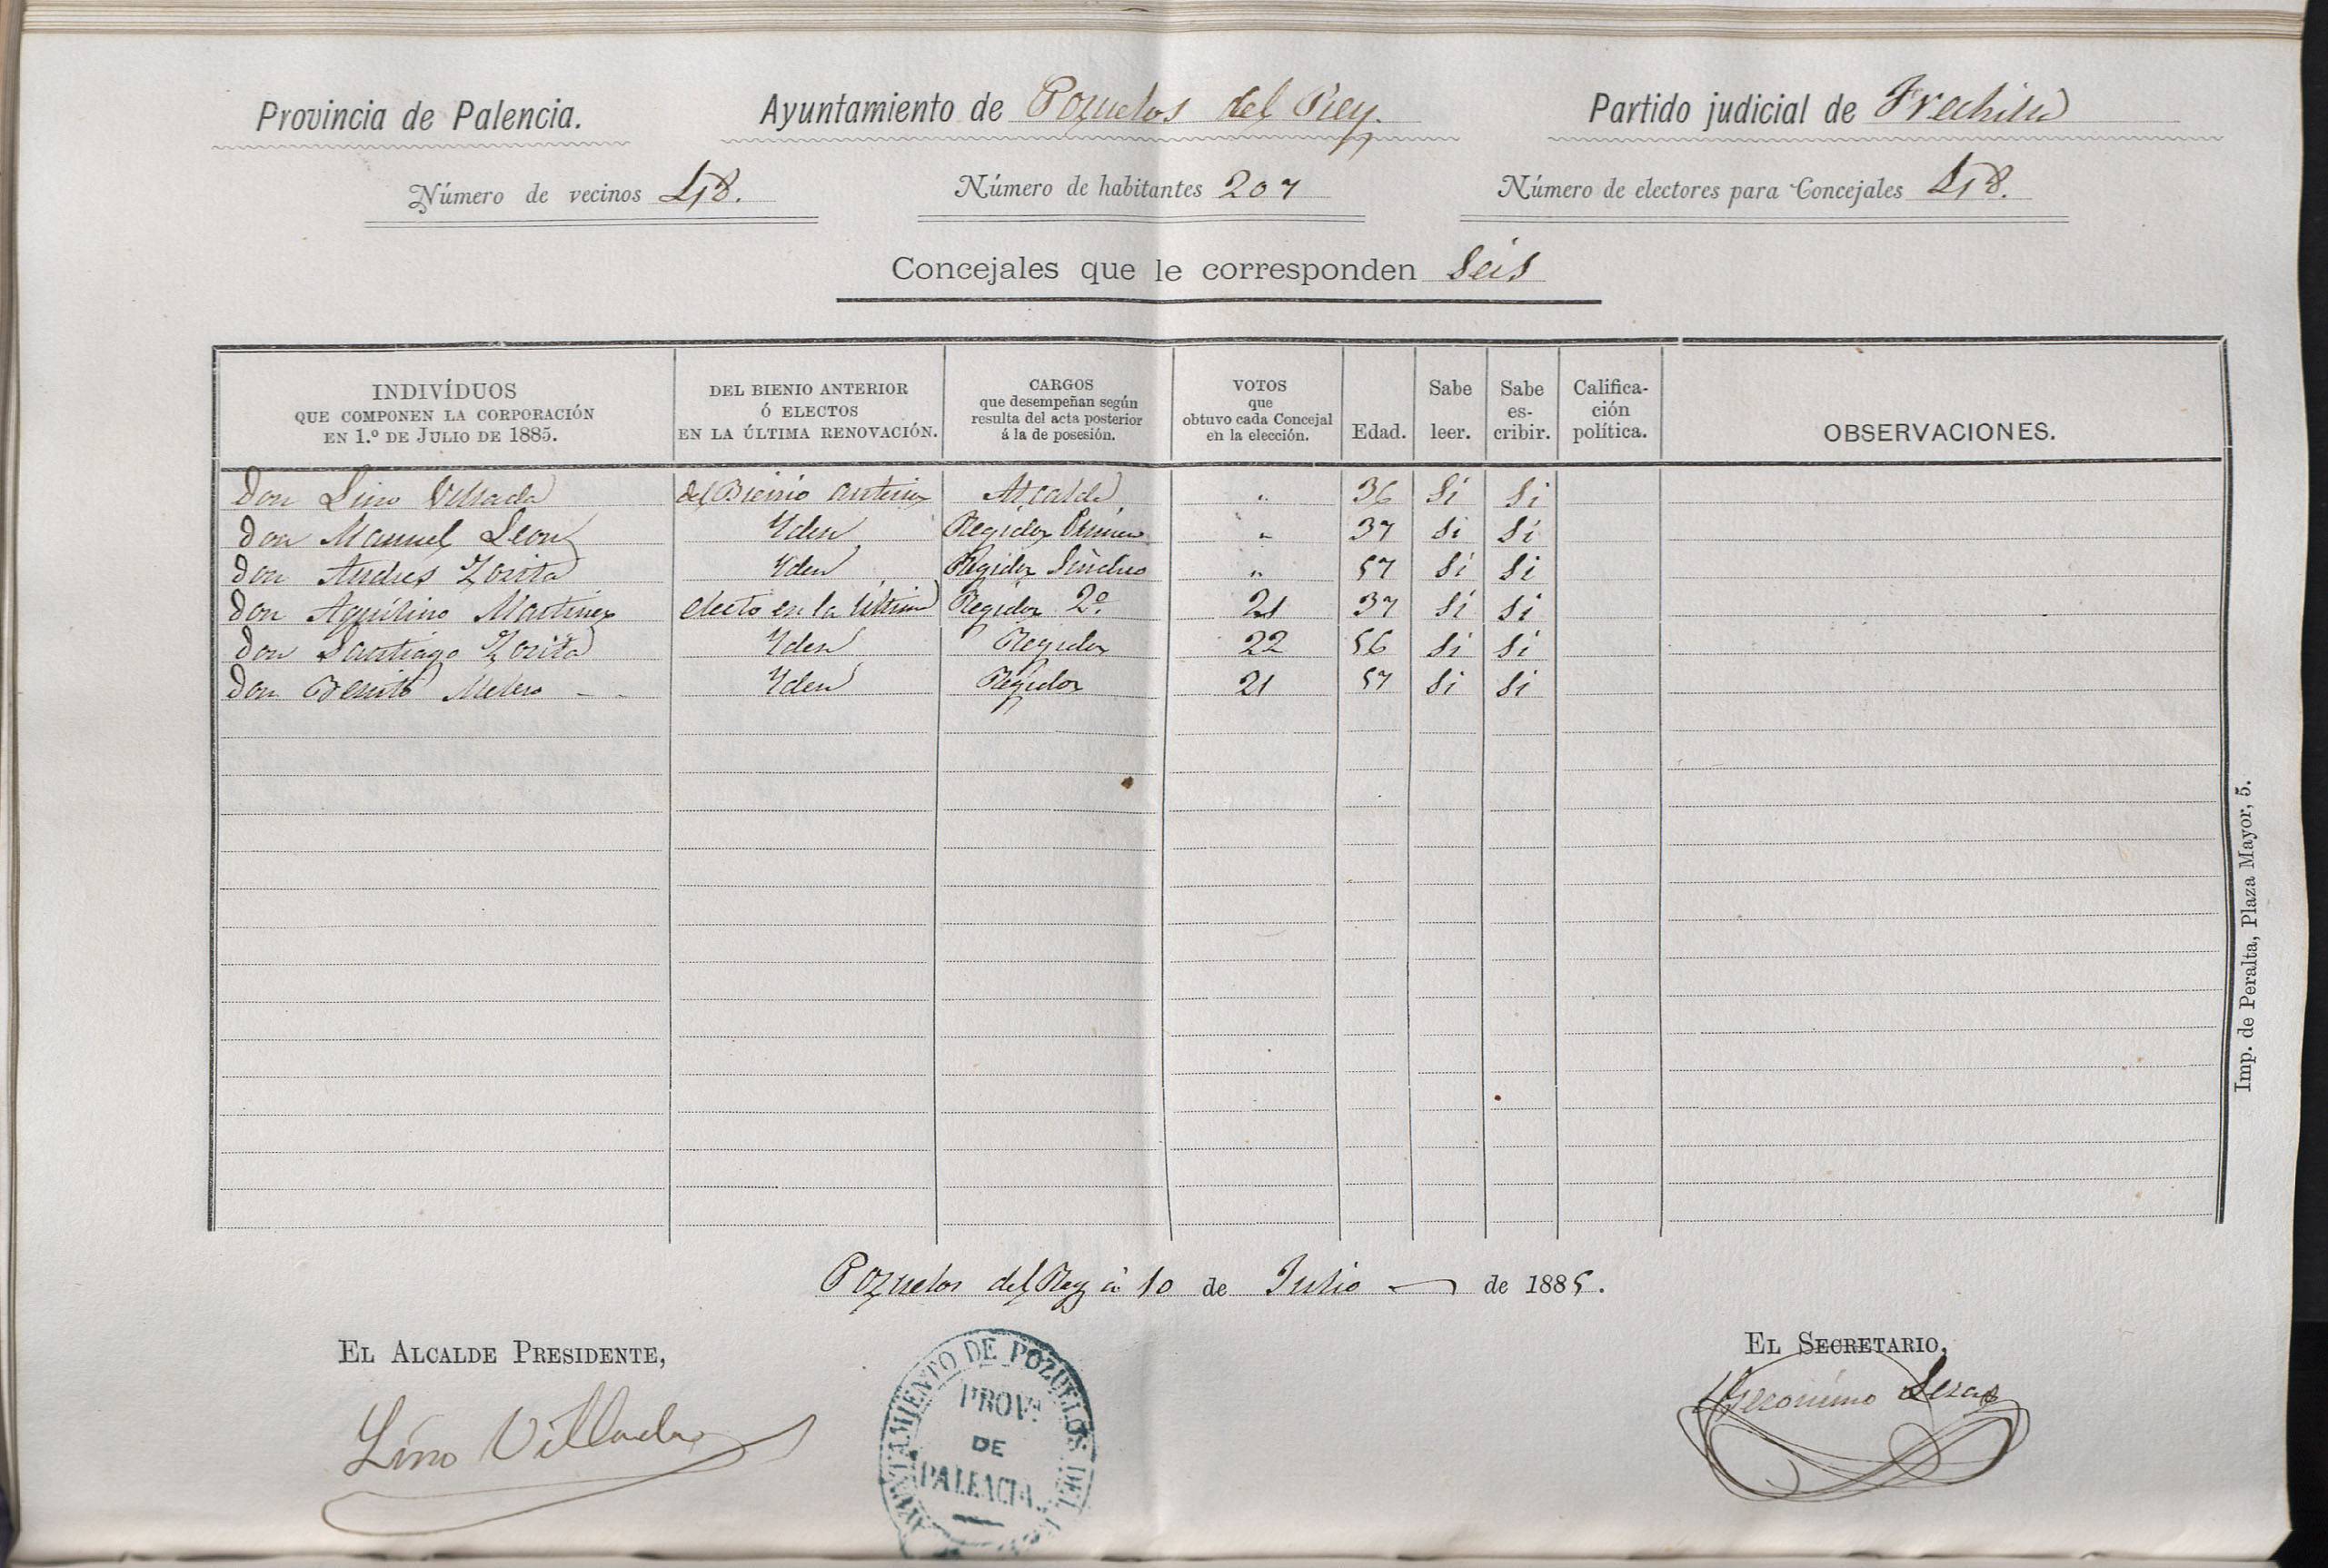 Provincia de Palencia. Ayuntamiento de Pozuelos del Rey. Partido judicial de Frechilla
Número de vecinos 48. Número de habitantes 207 Número de electores para Concejales 48.
Concejales que le corresponden Seis
INDIVÍDUOS QUE COMPONEN LA CORPORACIÓN EN 1.º DE JULIO DE 1885.
DEL BIENIO ANTERIOR Ó ELECTOS EN LA ÚLTIMA RENOVACIÓN.
CARGOS que desempeñan según resulta del acta posterior á la de posesión.
VOTOS que obtuvo cada Concejal en la elección.
Edad.
Sabe leer.
Sabe es-cribir.
Califica-ción política.
OBSERVACIONES.
Don Lino Villada del Bienio anterior Alcalde " 36 Si Si
Don Manuel Leon Yden Regidor Primero " 37 Si Si
Don Andres Zorita Yden Regidor Síndico " 57 Si Si
Don Aquilino Martinez electo en la última Regidor 2º 21 37 Si Si
Don Santiago Zorita Yden Regidor 22 56 Si Si
Don Benito Melero Yden Regidor 21 57 Si Si
Pozuelos del Rey á 10 de Julio de 1885.
EL ALCALDE PRESIDENTE, EL SECRETARIO,
Lino Villada Geronimo
AYUNTAMIENTO DE POZUELOS DEL
PROV.ª
DE
PALENCIA
Imp. de Peralta, Plaza Mayor, 5.